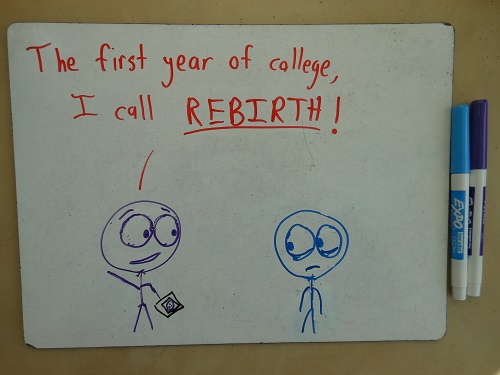 The first year of college,
I call REBIRTH!
EXPO